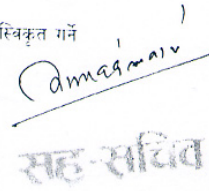 स्विकृत गर्ने
सह-सचिव